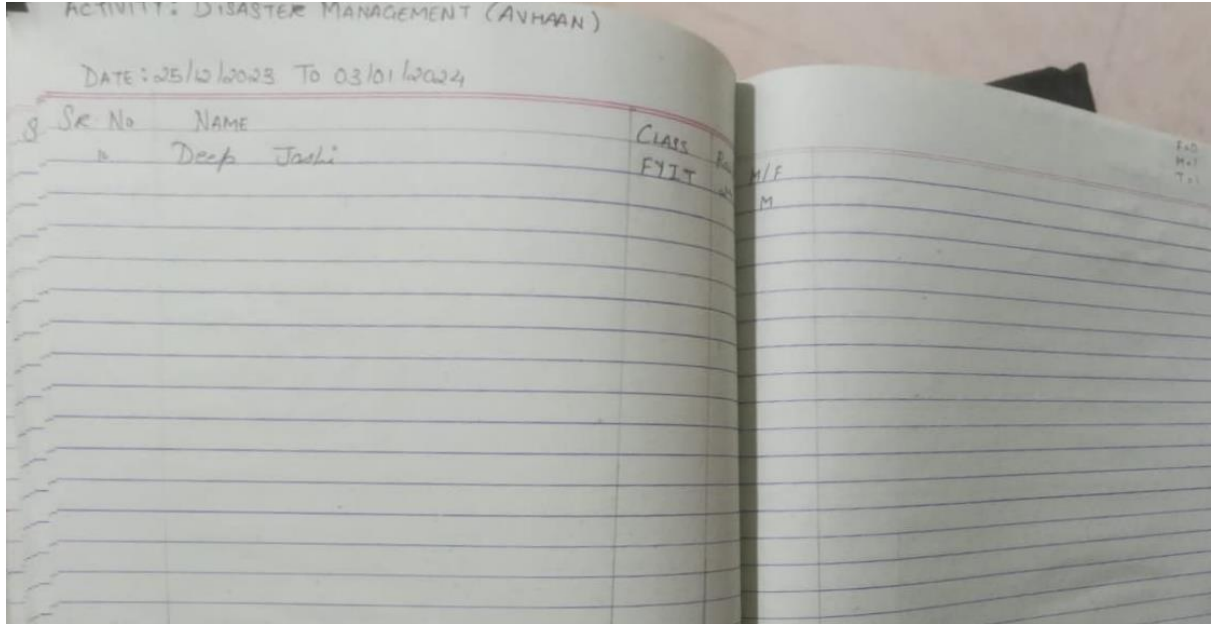 ACTIVITY: DISASTER MANAGEMENT (AVHAAN)
DATE: 25/12/2023 TO 03/01/2024
SR No NAME CLASS M/F
Deep Joshi FYIT M
F=0
M=1
T=1